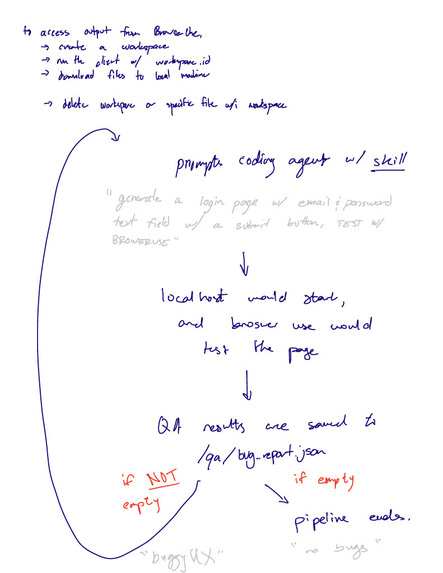 to access output from BrowserUse,
→ create a workspace
→ run the client w/ workspace.id
→ download files to local machine
→ delete workspace or specific file w/i workspace
prompts coding agent w/ skill
"generate a login page w/ email & password
text field w/ a submit button, TEST w/
BROWERUSE"
localhost would start,
and browser use would
test the page
QA results are saved to
/qa/bug-report.json
if NOT
empty
if empty
pipeline ends.
"buggy UX"
"no bugs"